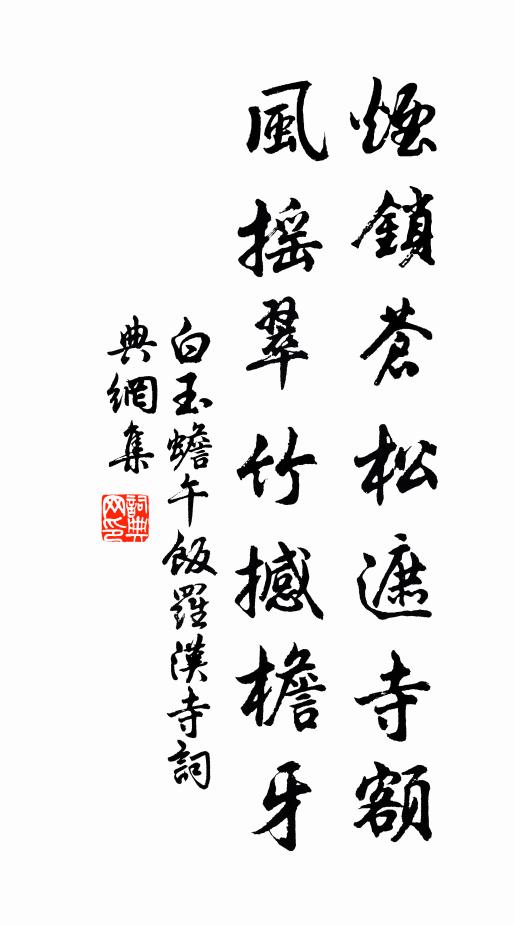 煙鎖蒼松遮寺額
風搖翠竹撼檐牙
白玉蟾午飯羅漢寺詞
典網集
詞典网印